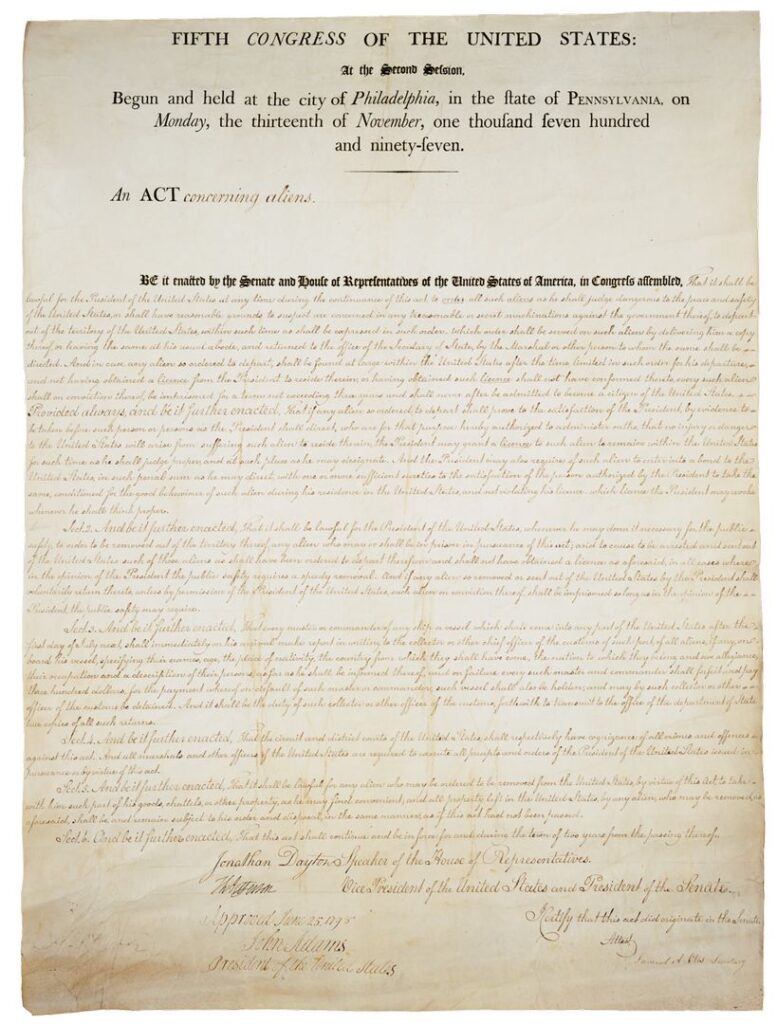 FIFTH CONGRESS OF THE UNITED STATES:
At the Second Session,
Begun and held at the city of Philadelphia, in the ſtate of PENNSYLVANIA, on
Monday, the thirteenth of November, one thouſand ſeven hundred
and ninety-ſeven.
An ACT concerning aliens.
BE it enacted by the Senate and House of Representatives of the United States of America, in Congress assembled, That it shall be
lawful for the President of the United States at any time during the continuance of this act, to order all such aliens as he shall judge dangerous to the peace and safety
of the United States, or shall have reasonable grounds to suspect are concerned in any treasonable or secret machinations against the government thereof, to depart
out of the territory of the United States, within such time as shall be expressed in such order, which order shall be served on such alien by delivering him a copy
thereof, or leaving the same at his usual abode, and returned to the office of the Secretary of State, by the Marshal or other person to whom the same shall be
directed. And in case any alien so ordered to depart, shall be found at large within the United States after the time limited in such order for his departure,
and not having obtained a licence from the President to reside therein, or having obtained such licence shall not have conformed thereto, every such alien
shall on conviction thereof, be imprisoned for a term not exceeding three years and shall never after be admitted to become a citizen of the United States.
Provided always, and be it further enacted, That if any alien so ordered to depart shall prove to the satisfaction of the President, by evidence to
be taken before such person or persons as the President shall direct, who are for that purpose hereby authorized to administer oaths, that no injury or danger
to the United States will arise from suffering such alien to reside therein, the President may grant a licence to such alien to remain within the United States
for such time as he shall judge proper, and at such place as he may designate. And the President may also require of such alien to enter into a bond to the
United States, in such penal sum as he may direct, with one or more sufficient sureties to the satisfaction of the person authorized by the President to take the
same, conditioned for the good behaviour of such alien during his residence in the United States, and not violating his licence, which licence the President may revoke
whenever he shall think proper.
Sect. 2. And be it further enacted, That it shall be lawful for the President of the United States, whenever he may deem it necessary for the public
safety, to order to be removed out of the territory thereof, any alien who may or shall be in prison in pursuance of this act; and to cause to be arrested and sent out
of the United States such of those aliens as shall have been ordered to depart therefrom and shall not have obtained a licence as aforesaid, in all cases where
in the opinion of the President the public safety requires a speedy removal. And if any alien so removed or sent out of the United States by the President shall
voluntarily return thereto, unless by permission of the President of the United States, such alien on conviction thereof, shall be imprisoned so long as in the opinion of the
President the public safety may require.
Sect. 3. And be it further enacted, That every master or commander of any ship or vessel which shall come into any port of the United States after the
first day of July next, shall immediately on his arrival make report in writing to the collector or other chief officer of the customs of such port, of all aliens, if any, on
board his vessel, specifying their names, age, the place of nativity, the country from which they shall have come, the nation to which they belong and owe allegiance,
their occupation and a description of their persons, as far as he shall be informed thereof, and on failure every such master and commander shall forfeit and pay
three hundred dollars, for the payment whereof on default of such master or commander, such vessel shall also be holden, and may by such collector or other
officer of the customs be detained. And it shall be the duty of such collector or other officer of the customs, forthwith to transmit to the office of the department of State
true copies of all such returns.
Sect. 4. And be it further enacted, That the circuit and district courts of the United States, shall respectively have cognizance of all crimes and offences
against this act. And all marshals and other officers of the United States are required to execute all precepts and orders of the President of the United States issued in
pursuance or by virtue of this act.
Sect. 5. And be it further enacted, That it shall be lawful for any alien who may be ordered to be removed from the United States, by virtue of this Act, to take
with him such part of his goods, chattels, or other property, as he may find convenient; and all property left in the United States, by any alien, who may be removed, as
aforesaid, shall be, and remain subject to his order and disposal, in the same manner as if this act had not been passed.
Sect. 6. And be it further enacted, That this act shall continue and be in force for and during the term of two years from the passing thereof.
Jonathan Dayton Speaker of the House of Representatives.
Th Jefferson Vice President of the United States and President of the Senate.
Approved June 25. 1798 I Certify that this act did originate in the Senate.
John Adams Attest,
President of the United States Samuel A. Otis Secretary